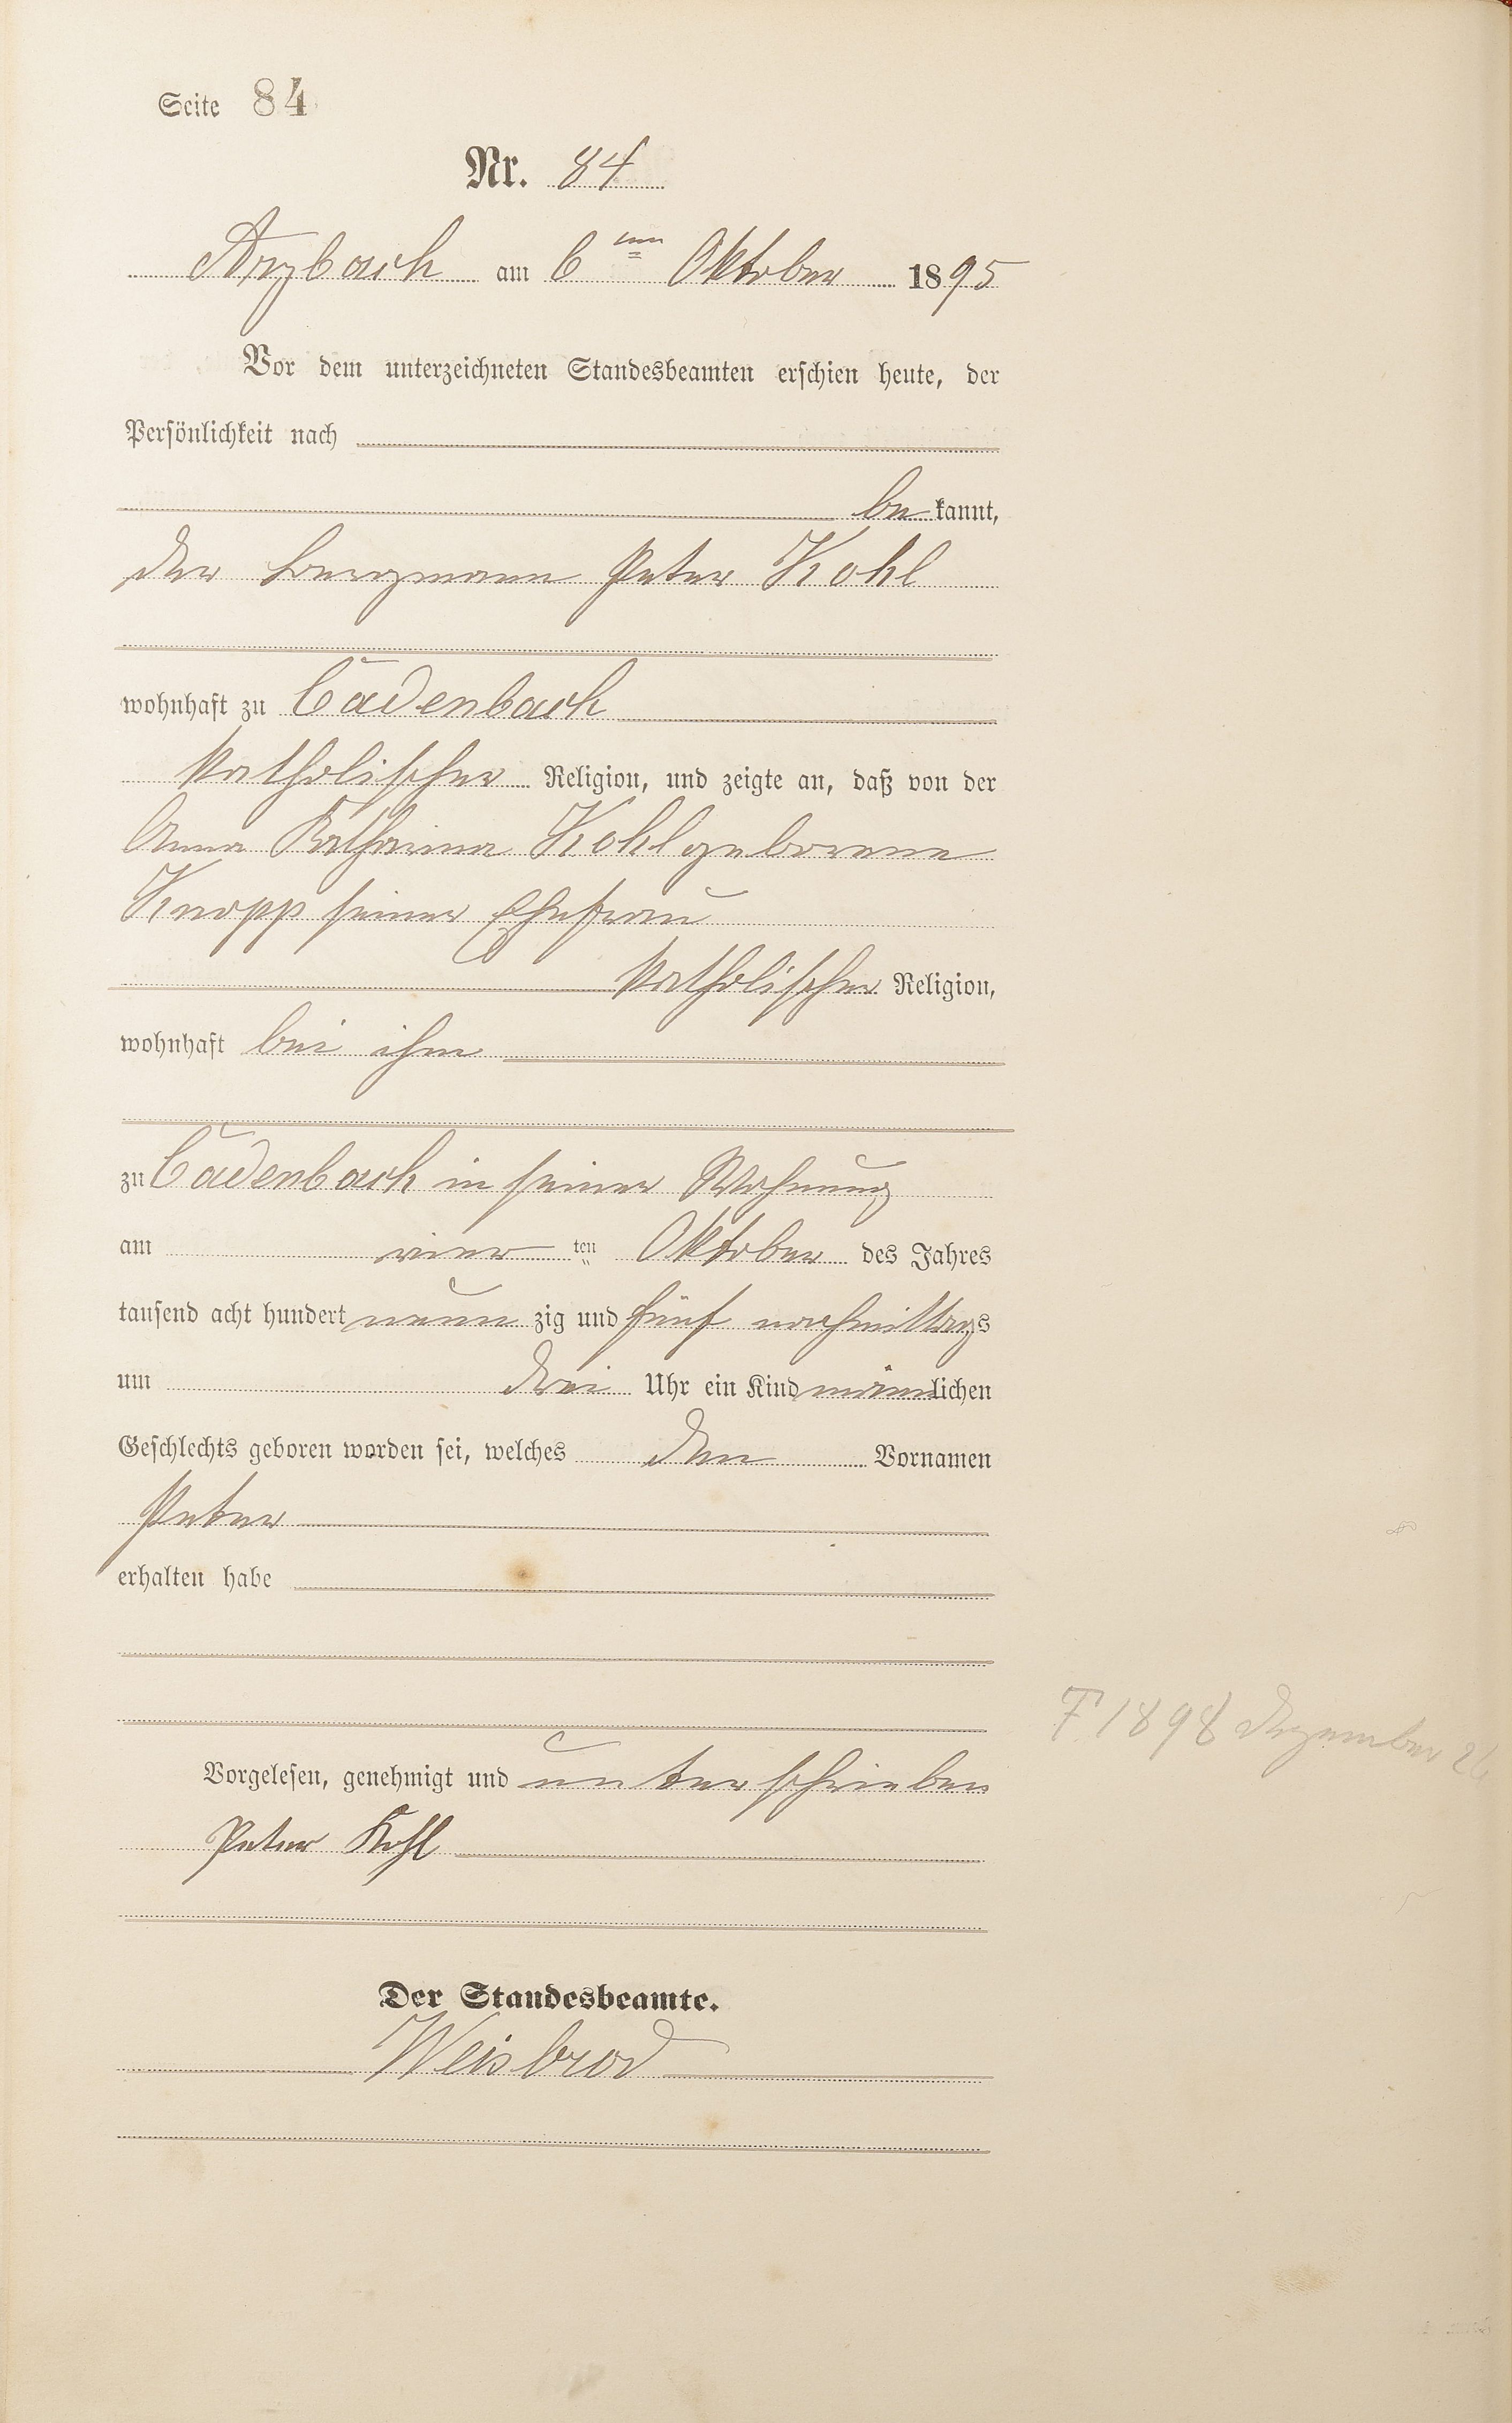 Seite 84
Nr. 84
Arzbach am 6ten Oktober 1895
Vor dem unterzeichneten Standesbeamten erschien heute, der
Persönlichkeit nach
be kannt,
der Bergmann Peter Kohl
wohnhaft zu Cadenbach
katholischer Religion, und zeigte an, daß von der
Anna Katharina Kohl geborene
Knopp seiner Ehefrau
katholischer Religion,
wohnhaft bei ihm
zu Cadenbach in seiner Wohnung
am vier ten Oktober des Jahres
tausend acht hundert neun zig und fünf nachmittags
um drei Uhr ein Kind männlichen
Geschlechts geboren worden sei, welches den Vornamen
Peter
erhalten habe
Vorgelesen, genehmigt und unterschrieben
Peter Kohl
Der Standesbeamte.
Weisbrod
1898 Dezember